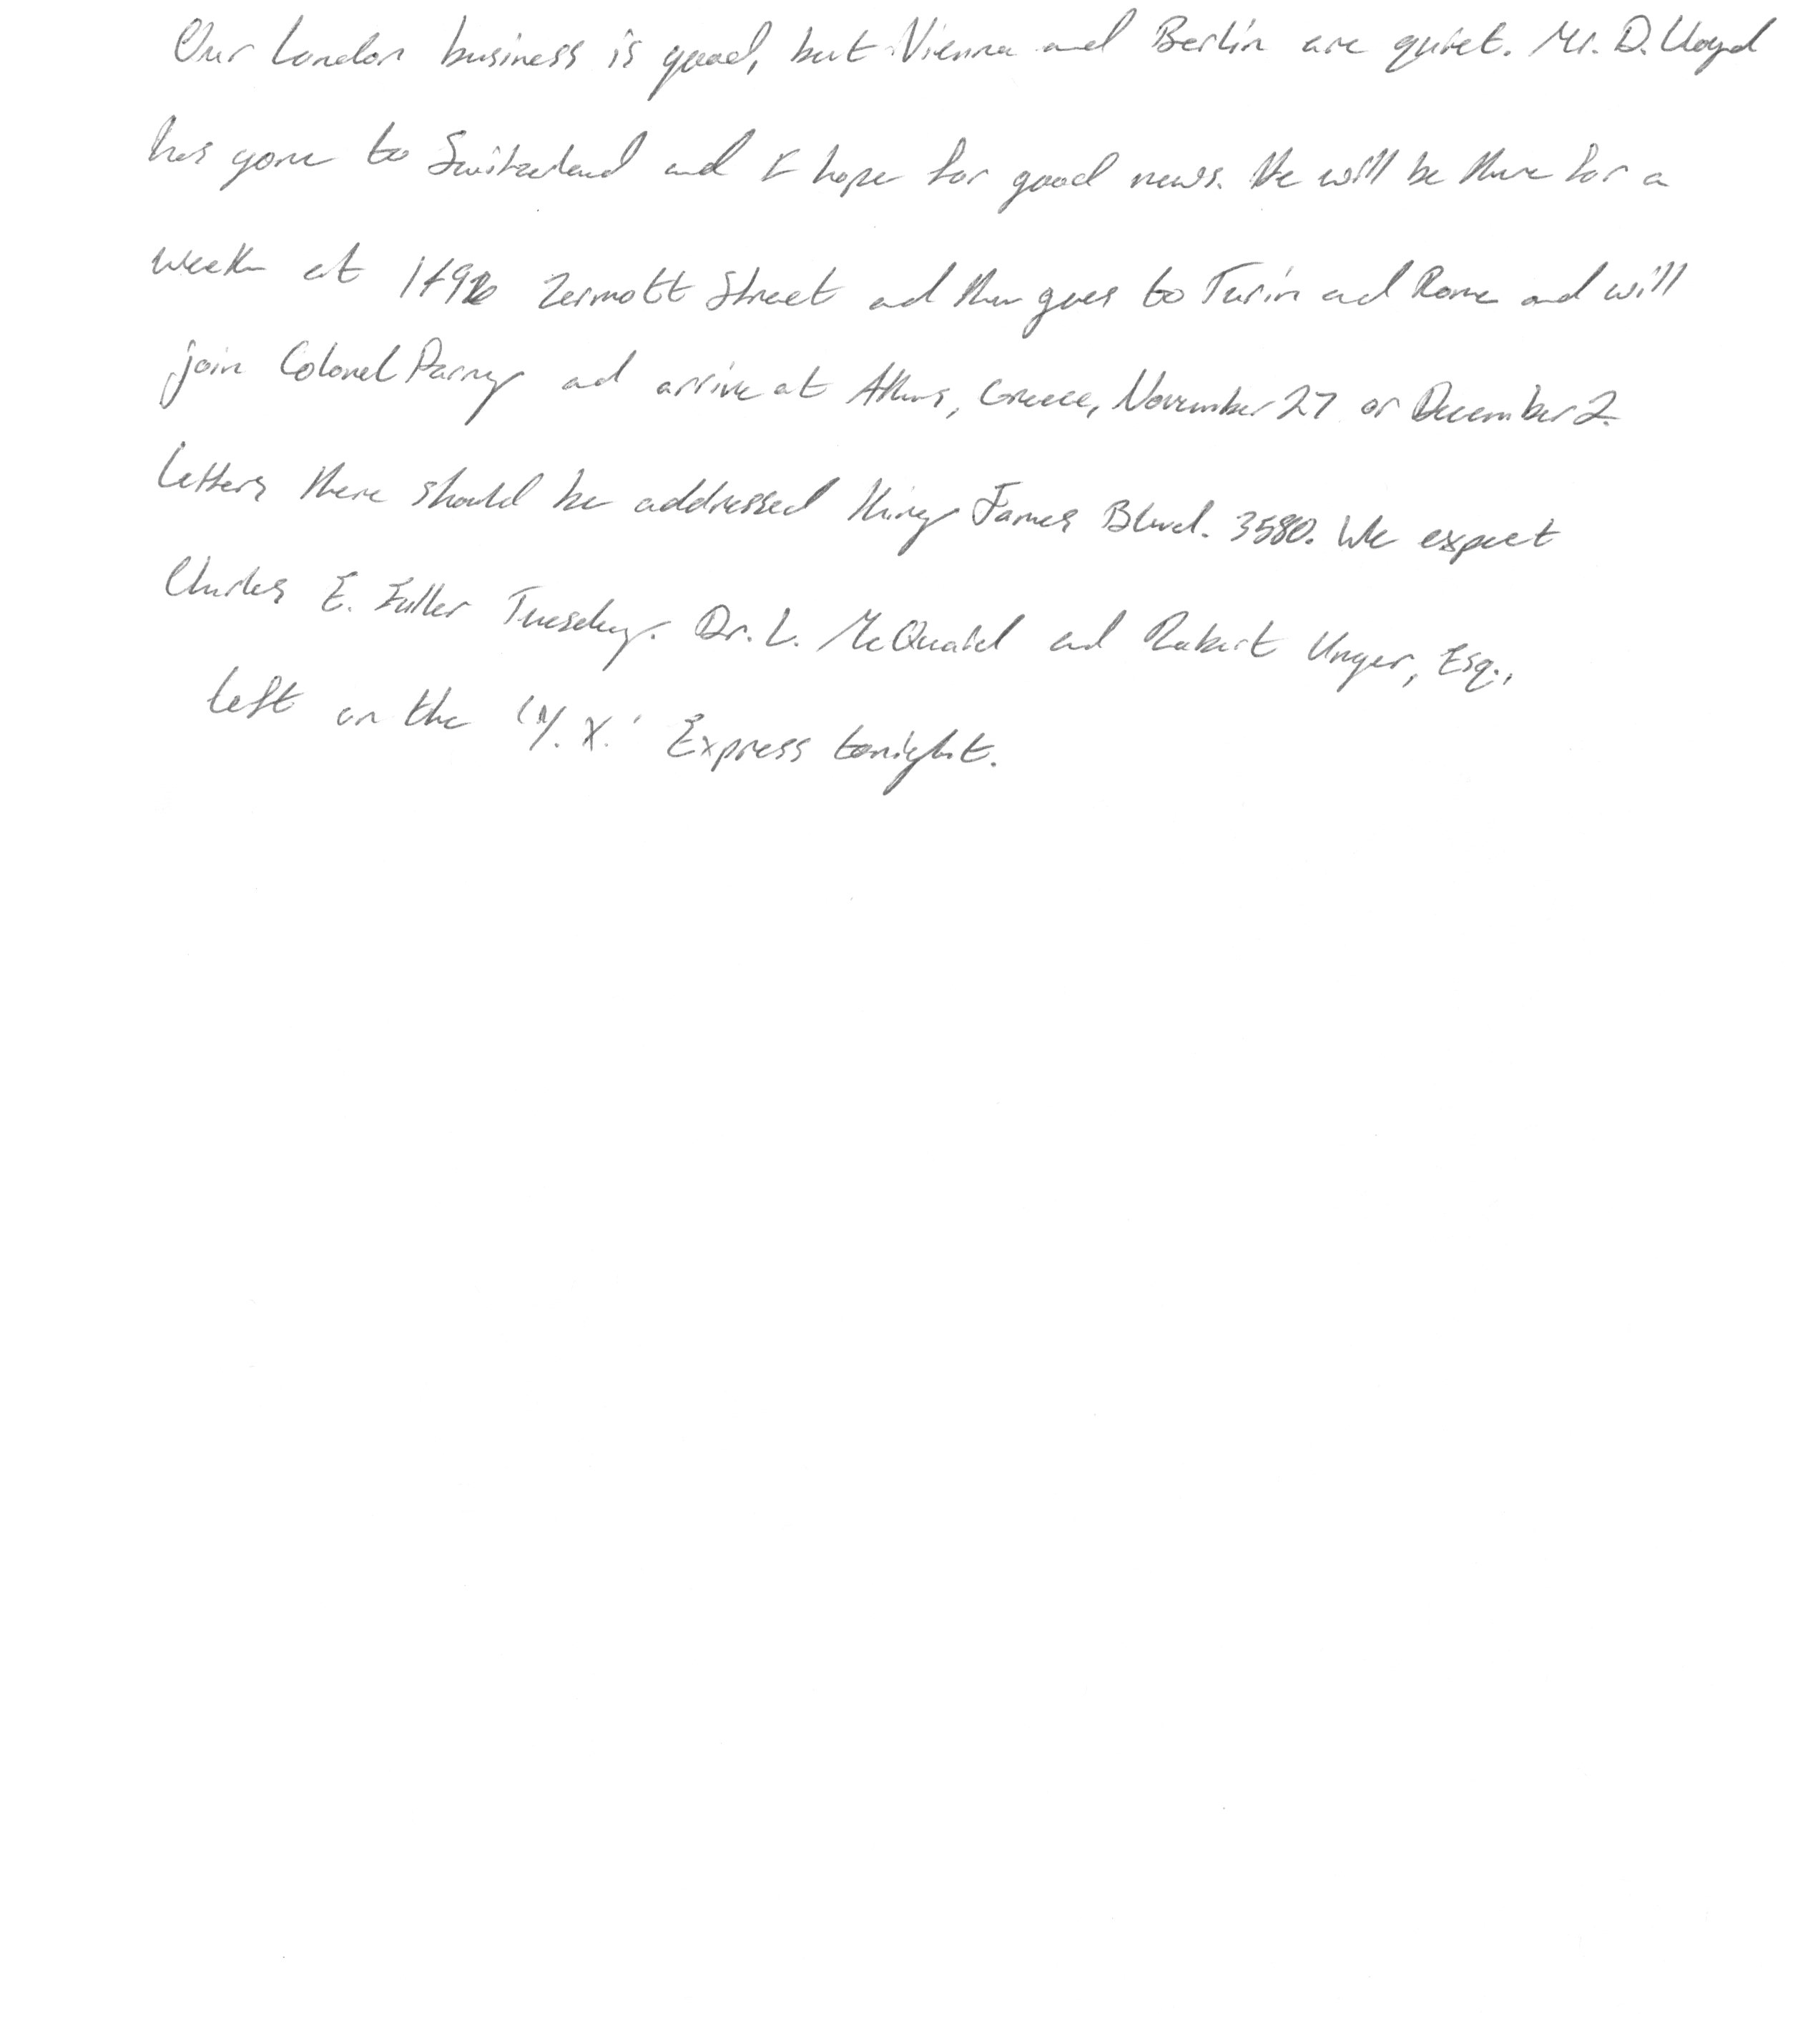 Our London business is good, but Vienna and Berlin are quiet. Mr. D. Lloyd
has gone to Switzerland and I hope for good news. He will be there for a
week at Zermott Street and then goes to Turin and Rome and will
join Colonel Parry and arrive at Athens, Greece, November 27 or December 2.
Letters there should be addressed King James Blvd. 3580. We expect
Charles E. Fuller Tuesday. Dr. L. McQuaid and Robert Unger, Esq.,
left on the 'Y. X.' Express tonight.